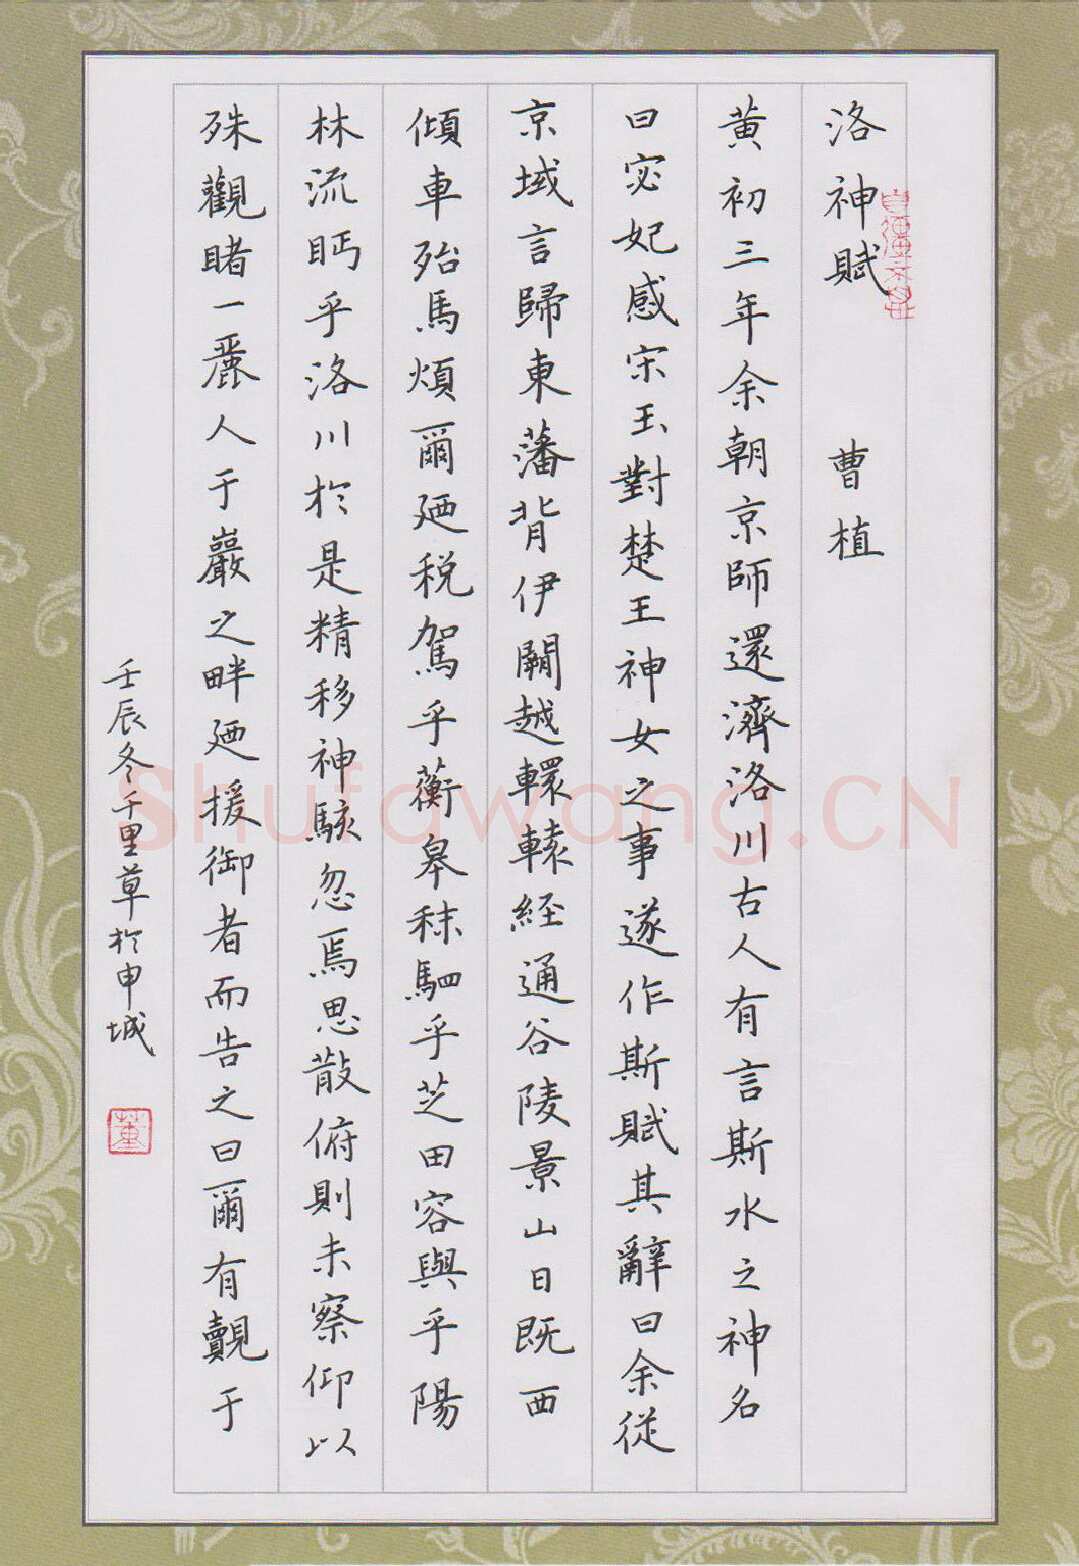 洛神賦 曹植
黃初三年余朝京師還濟洛川古人有言斯水之神名
曰宓妃感宋玉對楚王神女之事遂作斯賦其辭曰余從
京域言歸東藩背伊闕越轘轅經通谷陵景山日既西
傾車殆馬煩爾廼税駕乎蘅皋秣駟乎芝田容與乎陽
林流眄乎洛川於是精移神駭忽焉思散俯則未察仰以
殊觀睹一麗人于巖之畔廼援御者而告之曰爾有覿于
壬辰冬千里草於申城
董
Shufawang.CN